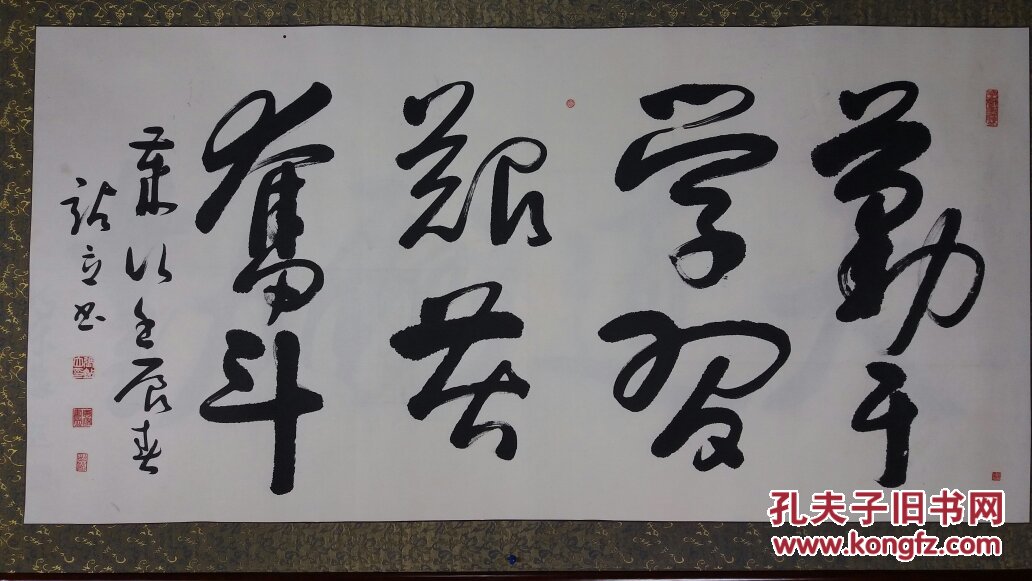 勤于
学习
艰苦
奋斗
岁次壬辰春
立书
孔夫子旧书网
www.kongfz.com